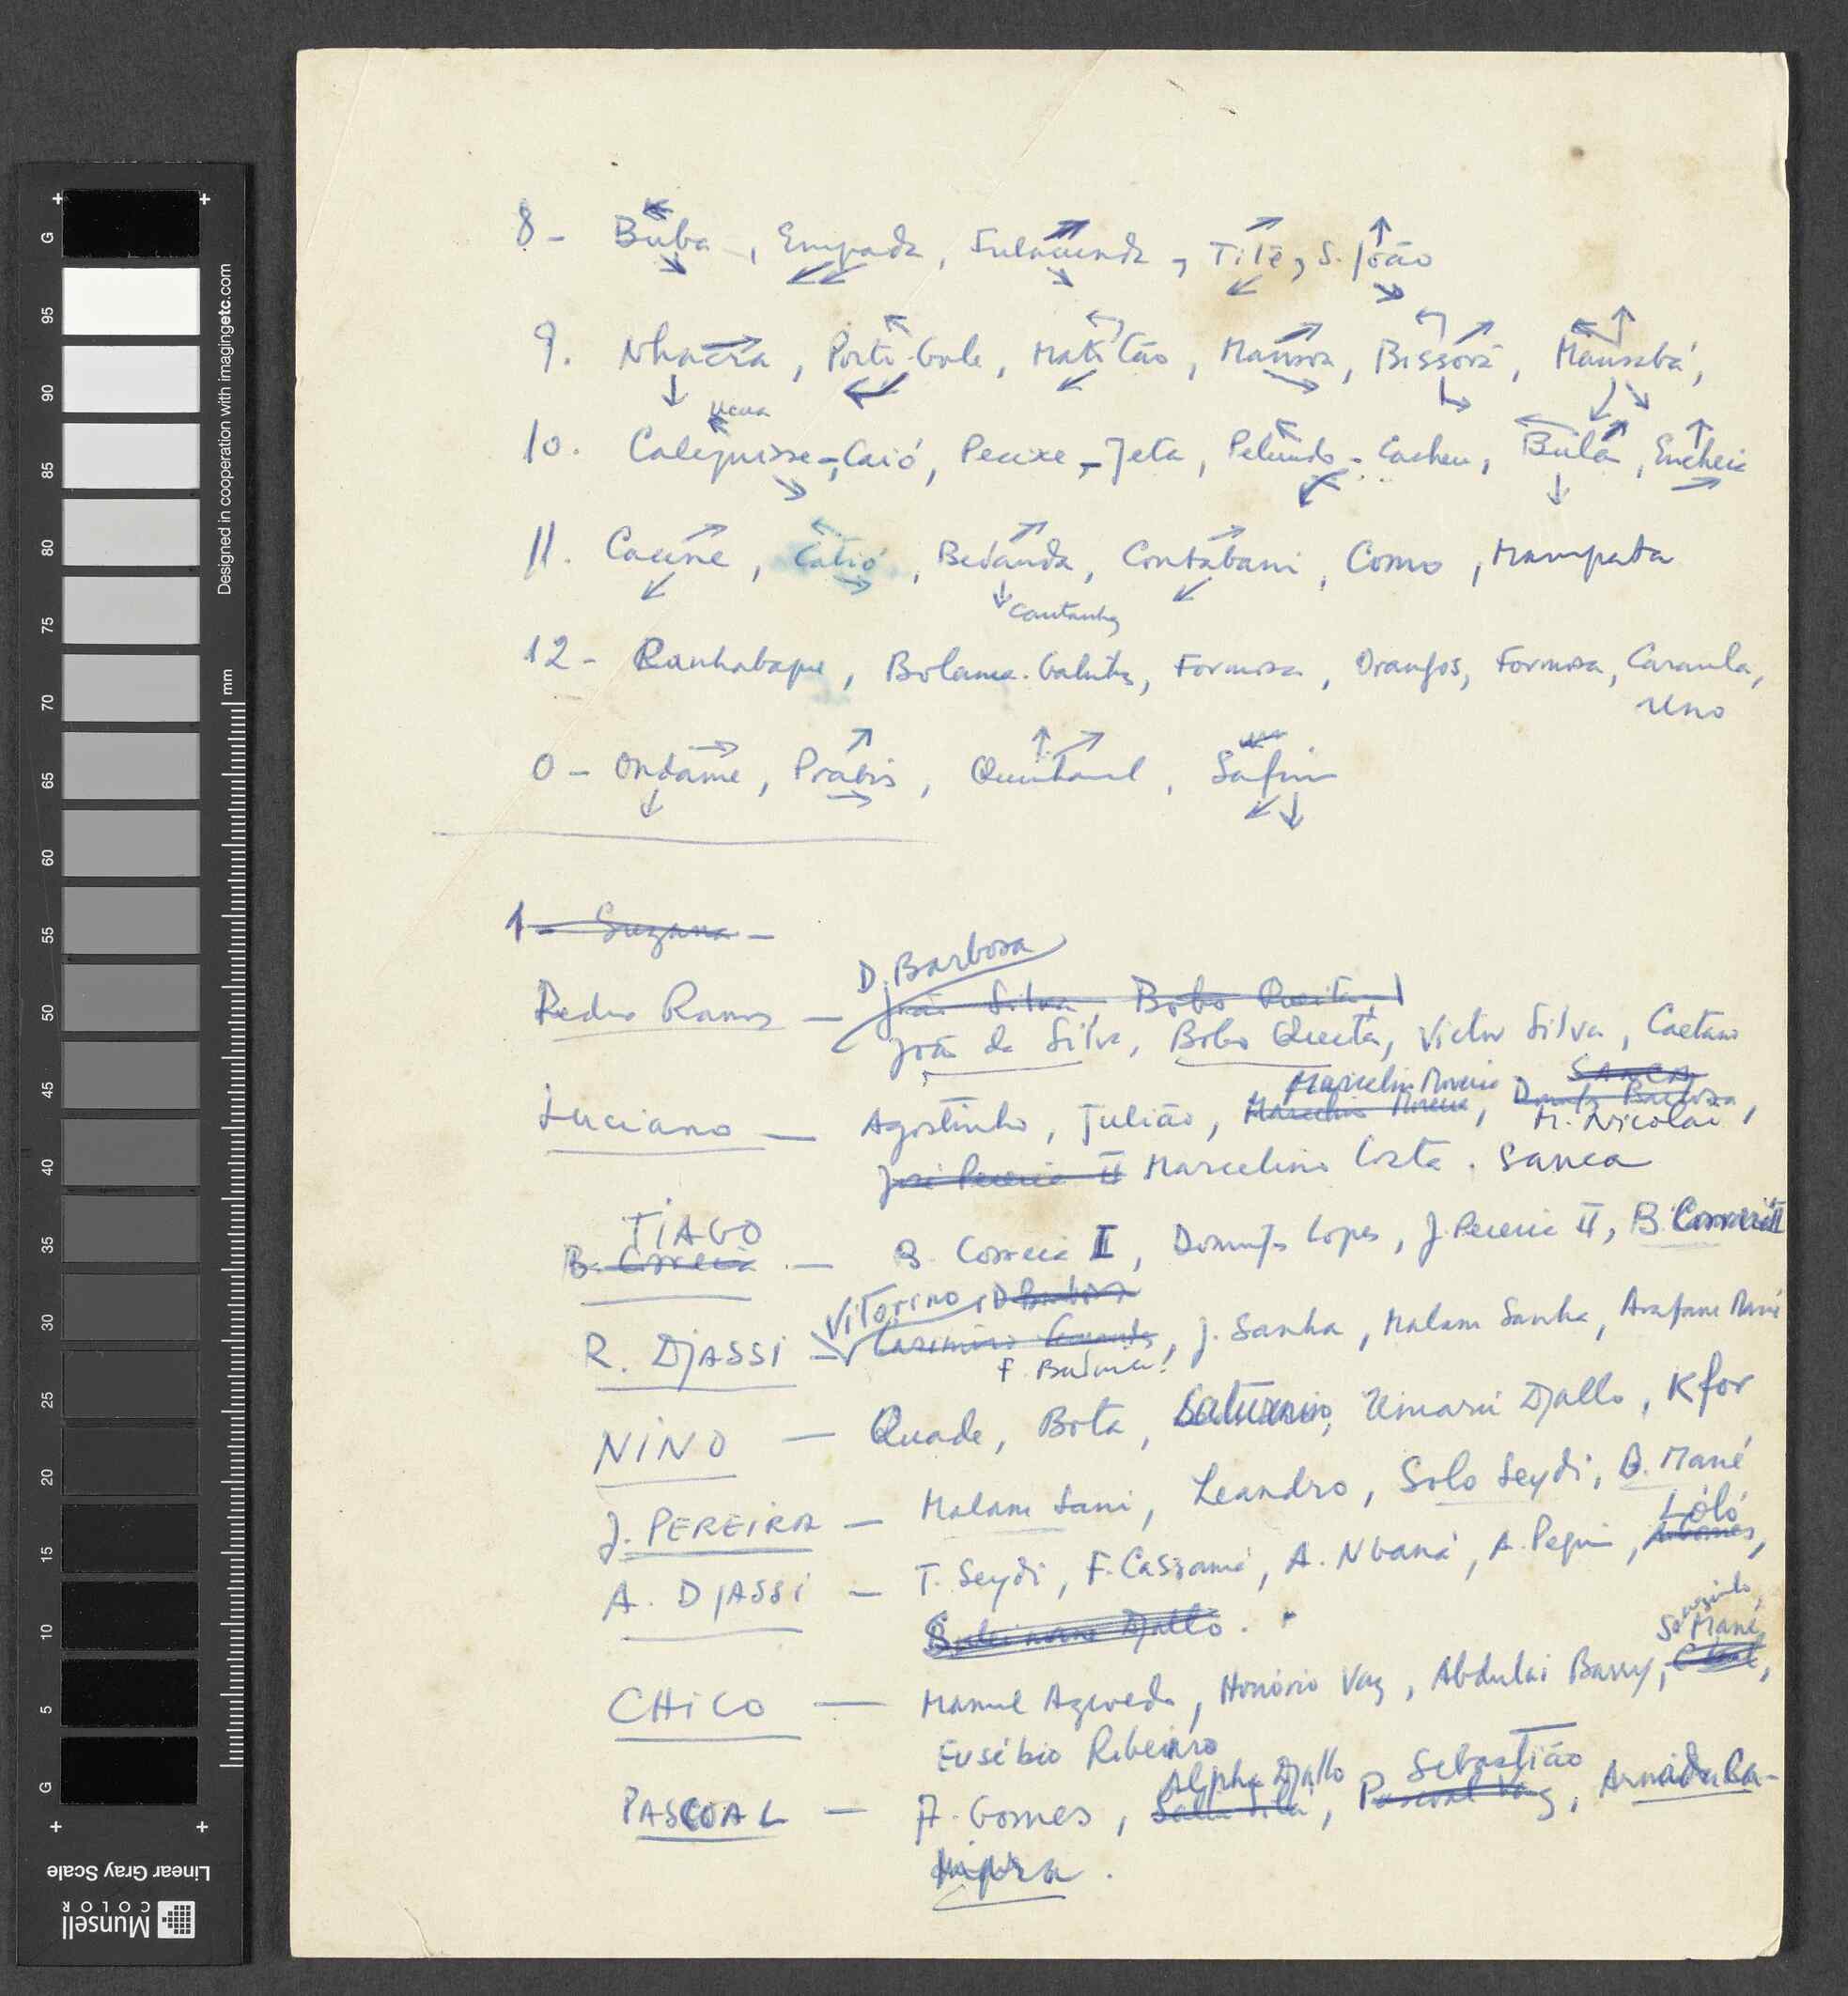 8 - Buba, Empada, Fulacunda, Tite, S. João
9. Nhacra, Porto-Gole, Matitão, Mansoa, Bissorã, Mansabá,
Ucua
10. Calequisse - Caió, Pecixe - Jeta, Pelundo - Cacheu, Bula, Encheia
11. Cacine, Catió, Bedanda, Contabani, Como, Mampata
Cantanhez
12 - Canhabaque, Bolama - Galinhas, Formosa, Orangos, Formosa, Caravela,
Uno
0 - Ondame, Prabis, Quinhamel, Safim
1 - Suzana -
D. Barbosa
João Silva, Bobo Queita,
Pedro Ramos - João da Silva, Bobo Queita, Victor Silva, Caetano
Marcelino Moreira SANCA
Luciano - Agostinho, Julião, Marcelino Moreira, Domingos Barbosa,
M. Nicolai
José Pereira II Marcelino Costa. Sanca
TIAGO
B. Correia - B. Correia I, Domingos Lopes, J. Pereira II, B. Correia II
Vitorino, D Barbosa
R. DJASSI - Casimiro, J. Sanha, Malam Sanha, Arafam Mané
NINO - Quade, Bota, Saturnino, Umarú Djallo, Kfor
J. PEREIRA - Malam Sani, Leandro, Solo Seydi, B. Mané
Lóló
A. DJASSI - T. Seydi, F. Cassamá, A. Nbaná, A. Pequi, A. Gomes,
Suleimane Djallo.
Mané,
CHICO - Manuel Azevedo, Honório Vaz, Abdulai Barry,
Eusébio Ribeiro
Alpha Djallo Sebastião
PASCOAL - A. Gomes, Pascoal Vaz,
Designed in cooperation with imagingetc.com
mm
G
95
90
85
80
75
70
65
60
55
50
45
40
35
30
25
20
15
10
5
G
Linear Gray Scale
Munsell
COLOR